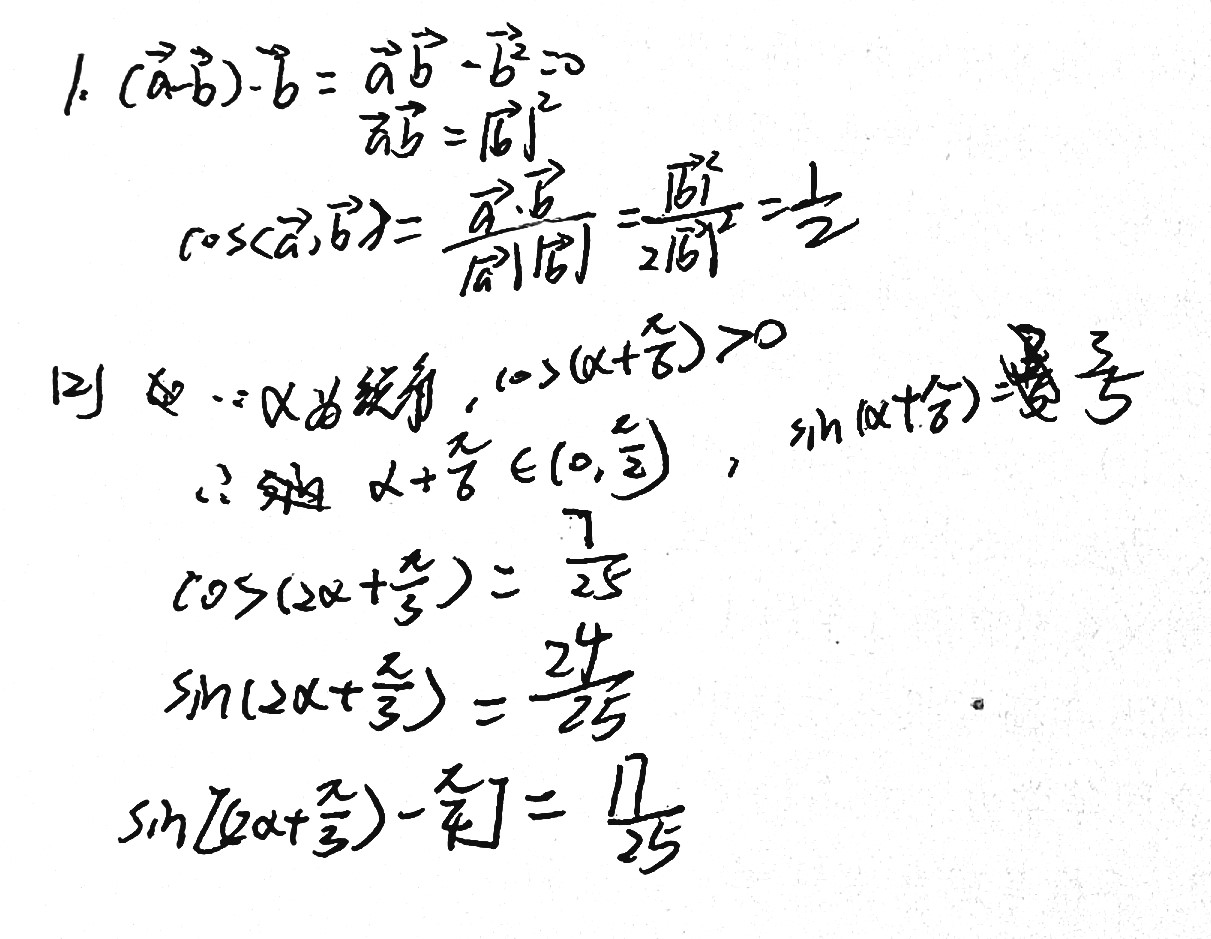 1. (a⃗-b⃗)·b⃗ = a⃗b⃗ - b⃗² = 0
a⃗b⃗ = |b⃗|²
cos<a⃗,b⃗> = a⃗·b⃗/|a⃗||b⃗| = |b⃗|²/2|b⃗|² = 1/2
[2] ∵ α为锐角, cos(α+π/6)>0
∴ α+π/6 ∈(0,π/2), sin(α+π/6)= 3/5
cos(2α+π/3) = 7/25
sin(2α+π/3) = 24/25
sin[(2α+π/3)-π/4] = 17/25